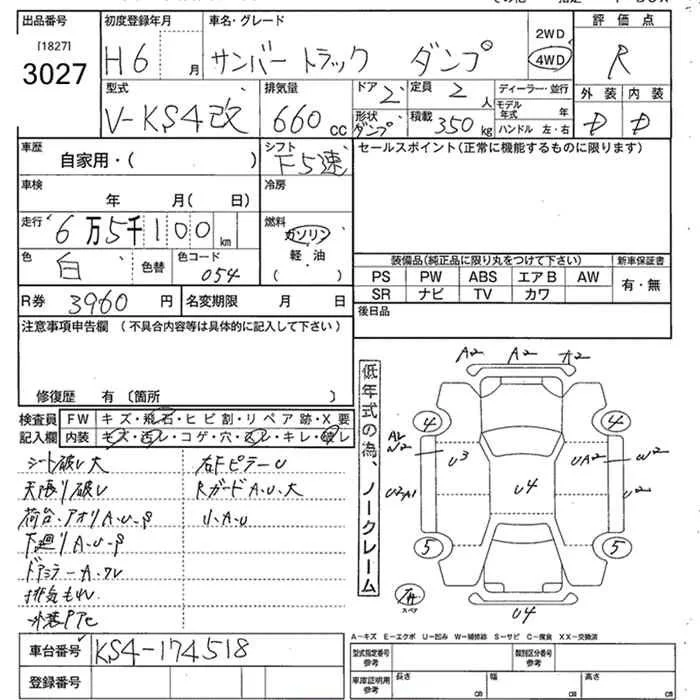 出品番号 初度登録年月 車名・グレード 2WD 評価点
[1827]
3027 H6 月 サンバートラック ダンプ 4WD R
型式 排気量 ドア 2 定員 2 人 ディーラー・並行 外装 内装
V-KS4改 660 cc 形状 ダンプ 積載 350 kg モデル年式 年 ハンドル 左・右 D D
車歴 自家用・( ) シフト F5速 セールスポイント(正常に機能するものに限ります)
車検 年 月( 日) 冷房
走行 6万5千100 km 燃料 ガソリン 軽油 ( )
色 白 色替 色コード 054
装備品(純正品に限り丸をつけて下さい) 新車保証書
PS PW ABS エアB AW 有・無
SR ナビ TV カワ
R券 3960 円 名変期限 月 日 後日品
注意事項申告欄 (不具合内容等は具体的に記入して下さい)
修復歴 有 (箇所 )
検査員記入欄 FW キズ・飛石・ヒビ割・リペア跡・X要
内装 キズ・汚レ・コゲ・穴・スレ・キレ・破レ
シート破レ大 右FピラーU
天張り破レ RガードA.U.大
荷台・アオリA.U.P リ.A.U
下廻りA.U.P
ドアミラーA.ワレ
排気もれ
外装Pアセ
低年式の為、ノークレーム
A2 A2 A2
4 4
U3 UA2 W2
U2A1 U4 U2
5 5
スペア U4
A-キズ E-エクボ U-凹み W-補修跡 S-サビ C-腐食 XX-交換済
車台番号 KS4-174518
登録番号
型式指定番号 参考 類別区分番号 参考
車庫証明用 参考 長さ cm 幅 cm 高さ cm